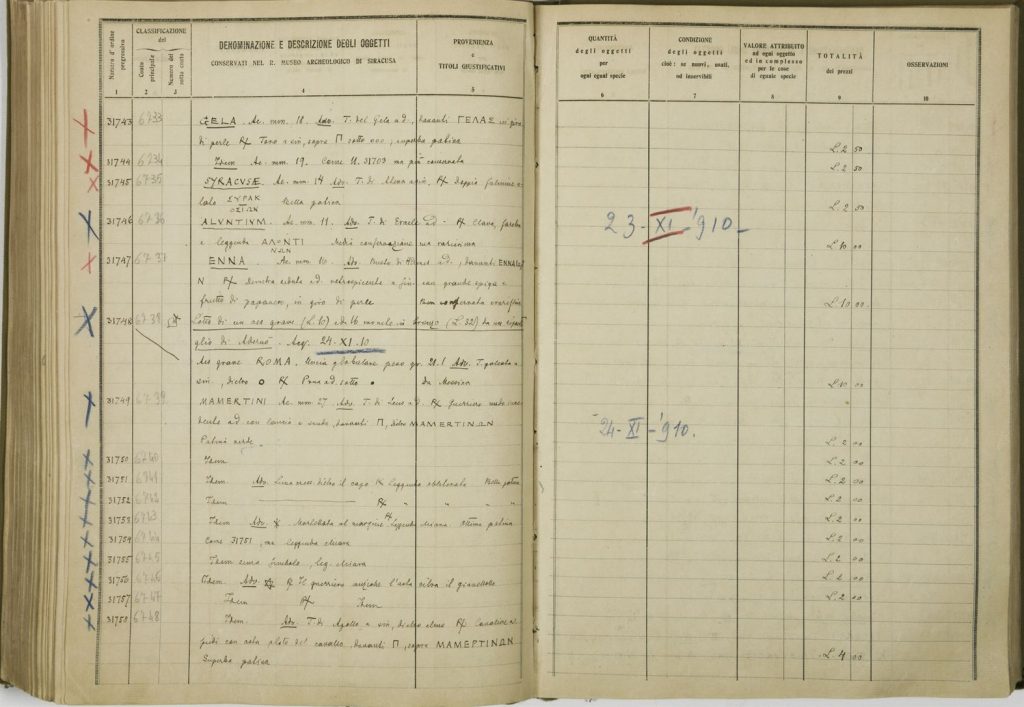 Numero d'ordine progressivo
CLASSIFICAZIONE
del
Costo principale
Numero del sotto conto
DENOMINAZIONE E DESCRIZIONE DEGLI OGGETTI
CONSERVATI NEL R. MUSEO ARCHEOLOGICO DI SIRACUSA
PROVENIENZA
e
TITOLI GIUSTIFICATIVI
1 2 3 4 5
31743 6733 GELA. Ae. mm. 18. Adv. T. del Gela ad., davanti ΓΕΛΑΣ in giro
di perle Rx Toro a sin, sopra Π sotto ooo, superba patina
31744 6734 Idem Ae. mm. 19. Come N. 31703 ma più conservata
31745 6735 SYRACUSE. Ae. mm. 14 Adv. T. di Atena a sin, Rx Doppio fulmine a
lato ΣΥΡΑΚ Bella patina
ΟΣΙΩΝ
31746 6736 ALVNTIVM. Ae. mm. 11. Adv. T. di Eracle ad - Rx Clava, faretra
e leggenda ΑΛΟΝΤΙ Media conservazione ma rarissima
ΝΩΝ
31747 6737 ENNA. Ae. mm. 16. Adv. Busto di ad., davanti ENNAIO
N Rx Demetra seduta ad. retrospiciente a sin. con grande spiga e
frutto di papavero, in giro di perle Ben conservata
31748 6738 Lotto di un aes grave (L. 10) ed 16 monete in bronzo (L. 32) da un riposti
glio di Adernò. Acq. 24-XI.10
Aes grave ROMA. Uncia globulare peso gr. 28.1 Adv. T. galeata a
sin., dietro o Rx Prua ad. sotto • Da Messina
31749 6739 MAMERTINI Ae. mm. 27 Adv. T. di Zeus ad. Rx Guerriero nudo ince
dente ad con lancia e scudo, davanti Π, dietro ΜΑΜΕΡΤΙΝΩΝ
Patina verde.
31750 6740 Idem
31751 6741 Idem. Adv. dietro il capo Rx leggenda obliterata Bella patina
31752 6742 Idem Rx " " " "
31753 6743 Idem Adv. Martellata al margine Rx leggenda chiara. Ottima patina
31754 6744 Come 31751, ma leggenda chiara
31755 6745 Idem senza simbolo, leg. chiara
31756 6746 Idem. Adv. Rx Il guerriero anziché l'asta vibra il giavellotto
31757 6747 Idem Rx Idem
31758 6748 Idem. Adv. T. di Apollo a sin, dietro elmo Rx Cavaliere a
piedi con asta del cavallo, davanti Π, sopra ΜΑΜΕΡΤΙΝΩΝ
Superba patina
QUANTITÀ
degli oggetti
per
ogni egual specie
CONDIZIONE
degli oggetti
cioè: se nuovi, usati,
od inservibili
VALORE ATTRIBUITO
ad ogni oggetto
ed in complesso
per le cose
di eguale specie
TOTALITÀ
dei prezzi
OSSERVAZIONI
6 7 8 9 10
L. 2 50
L. 2 50
L. 2 50
23-XI-'910-
L. 10 00
L. 10 00
L. 10 00
24-XI-'910.
L. 2 00
L. 2 00
L. 2 00
L. 2 00
L. 2 00
L. 2 00
L. 2 00
L. 2 00
L. 2 00
L. 4 00